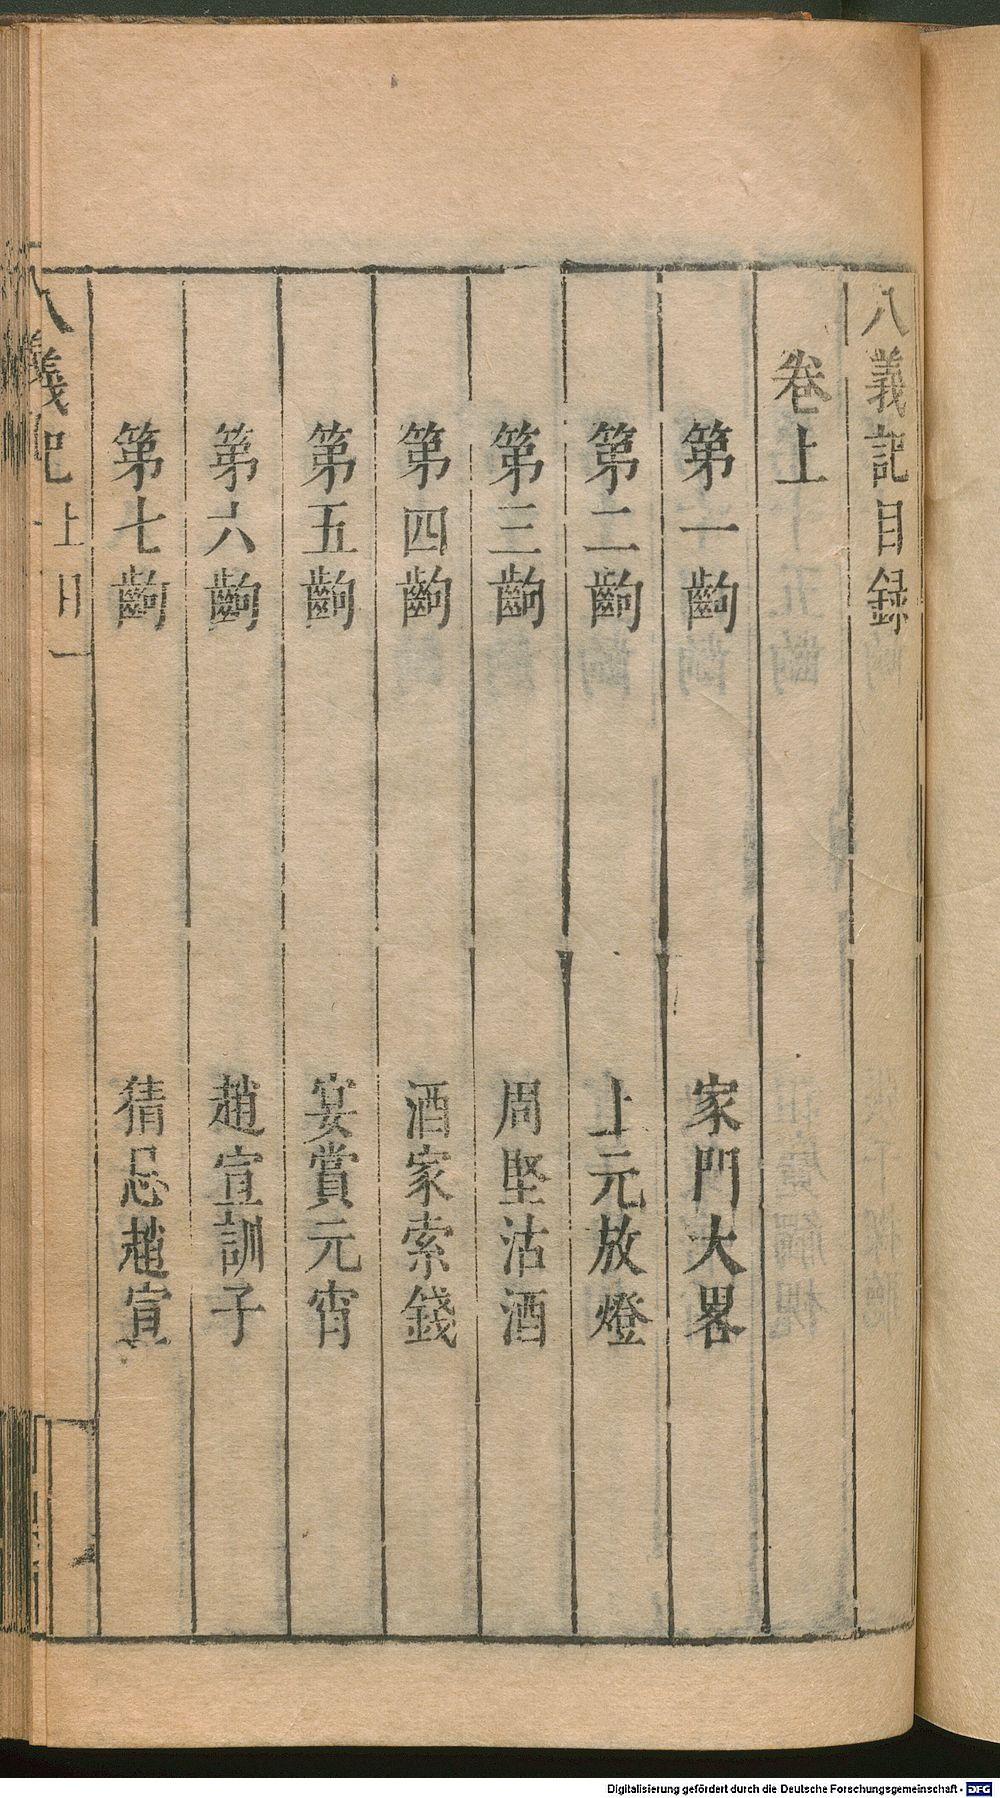 八義記目錄
卷上
第一齣 家門大畧
第二齣 上元放燈
第三齣 周堅沽酒
第四齣 酒家索錢
第五齣 宴賞元宵
第六齣 趙宣訓子
第七齣 猜忌趙宣
八義記 上目 一
Digitalisierung gefördert durch die Deutsche Forschungsgemeinschaft - DFG